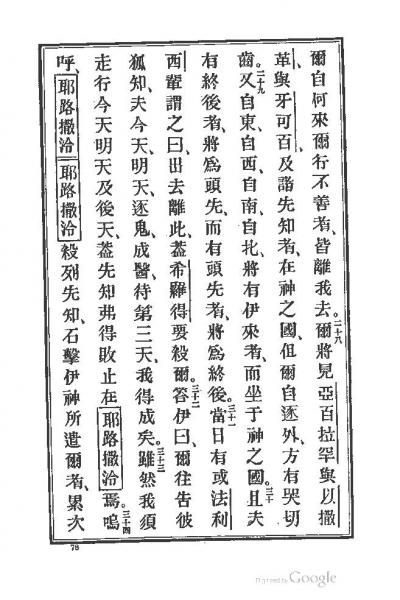 爾自何來爾行不善者、皆離我去。二十八爾將見亞百拉罕與以撒
革與牙可百及諸先知者、在神之國、但爾自逐外、方有哭切
齒。二十九又自東、自西、自南、自北、將有伊來者、而坐于神之國。三十且夫
有終後者、將為頭先、而有頭先者、將為終後。三十一當日有或法利
西輩謂之曰、出去離此、蓋希羅得要殺爾。三十二答伊曰、爾往告彼
狐知、夫今天、明天、逐鬼、成醫、待第三天、我得成矣。三十三雖然我須
走行今天明天及後天、蓋先知弗得敗止在耶路撒冶焉。三十四嗚
呼、耶路撒冶耶路撒冶殺列先知、石擊伊神所遣爾者、累次
78
Digitized by Google